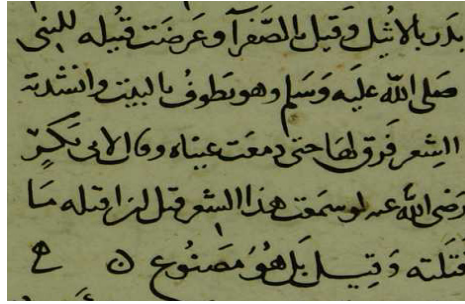 بدر بالاثيل وقيل بالصفرآ وعرضت قتيله للنبى
صلى الله عليه وسلم وهو يطوف بالبيت وانشدته
الشعر فرق لها حتى دمعت عيناه وقال لابى بكر
رضى الله عنه لو سمعت هذا الشعر قبل ان اقتله ما
قتلته وقيل بل هو مصنوع